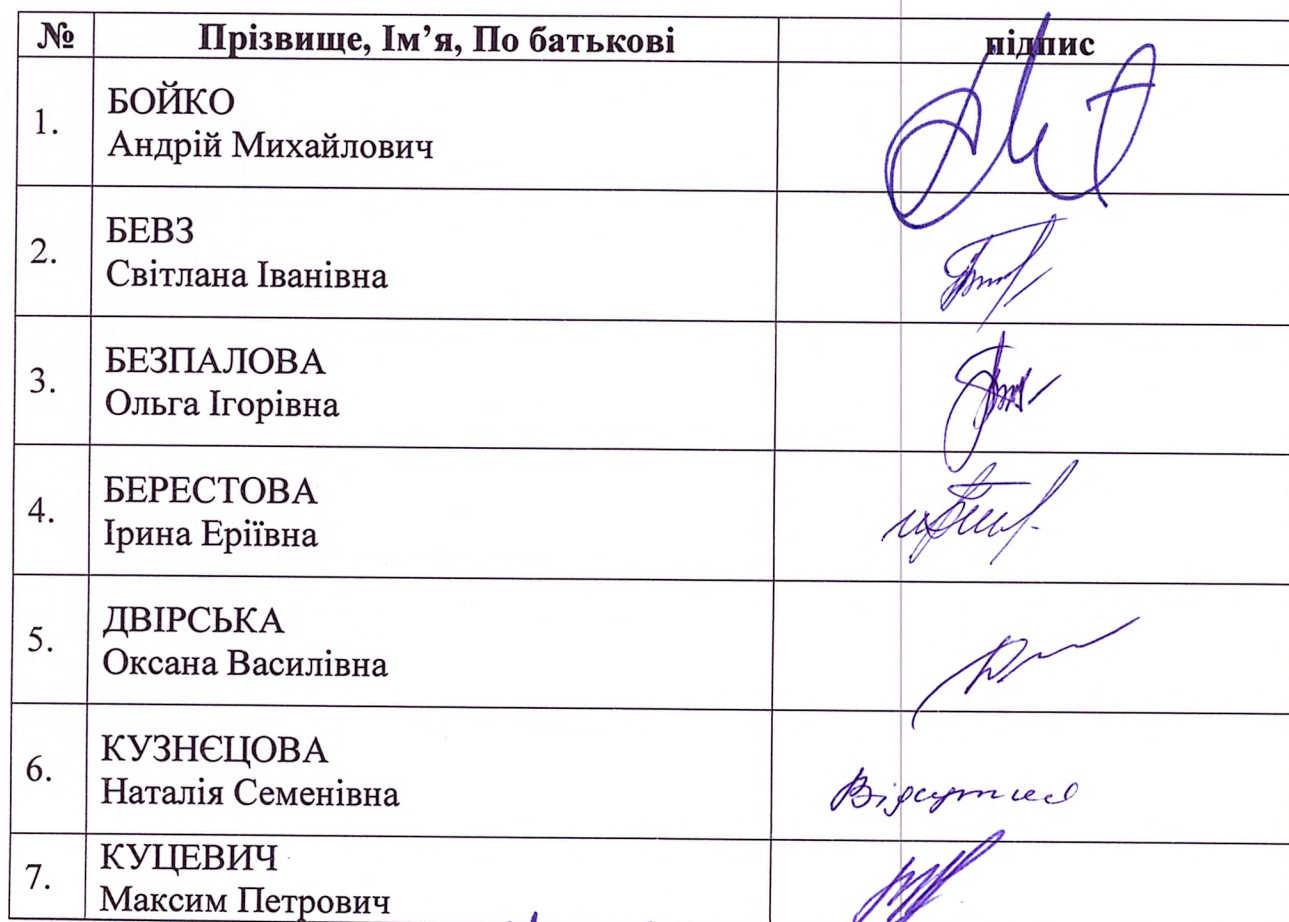 № Прізвище, Ім’я, По батькові підпис
1. БОЙКО
Андрій Михайлович
2. БЕВЗ
Світлана Іванівна
3. БЕЗПАЛОВА
Ольга Ігорівна
4. БЕРЕСТОВА
Ірина Еріївна
5. ДВІРСЬКА
Оксана Василівна
6. КУЗНЄЦОВА
Наталія Семенівна
Відсутня
7. КУЦЕВИЧ
Максим Петрович